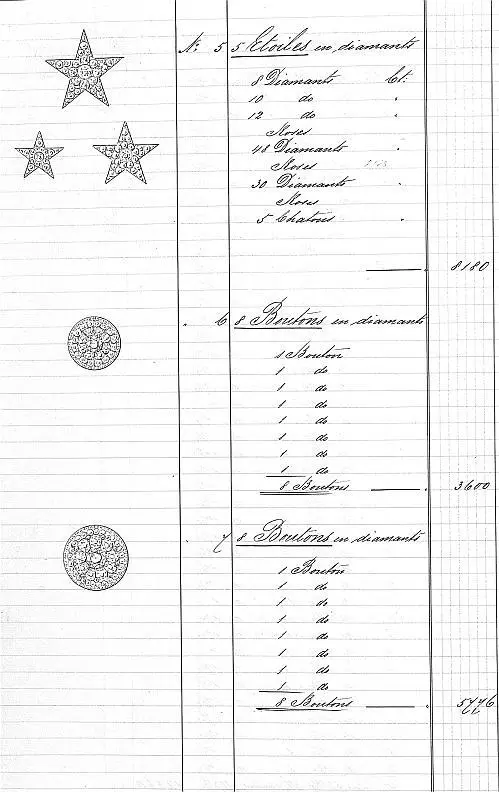 N: 5 5 Etoiles en diamants
8 Diamants Ct:
10 do "
12 do "
Roses
48 Diamants "
Roses
30 Diamants "
Roses
5 Chatons "
8180
" 6 8 Boutons en diamants
1 Bouton
1 do
1 do
1 do
1 do
1 do
1 do
1 do
8 Boutons 3600
" 7 8 Boutons en diamants
1 Bouton
1 do
1 do
1 do
1 do
1 do
1 do
1 do
8 Boutons 5776